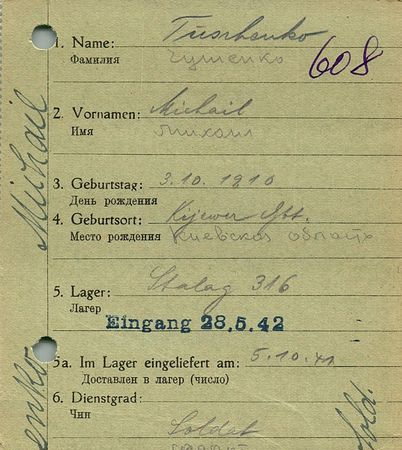 1. Name: Tusrhenko
Фамилия Гушенко
608
2. Vornamen: Michail
Имя Михаил
3. Geburtstag: 3.10.1910
День рождения
4. Geburtsort: Kijewer Gbt.
Место рождения Киевская область
5. Lager: Stalag 316
Лагер
Eingang 28.5.42
5a. Im Lager eingeliefert am: 5.10.41
Доставлен в лагер (число)
6. Dienstgrad:
Чин
Soldat
Michail
enko
Sold.